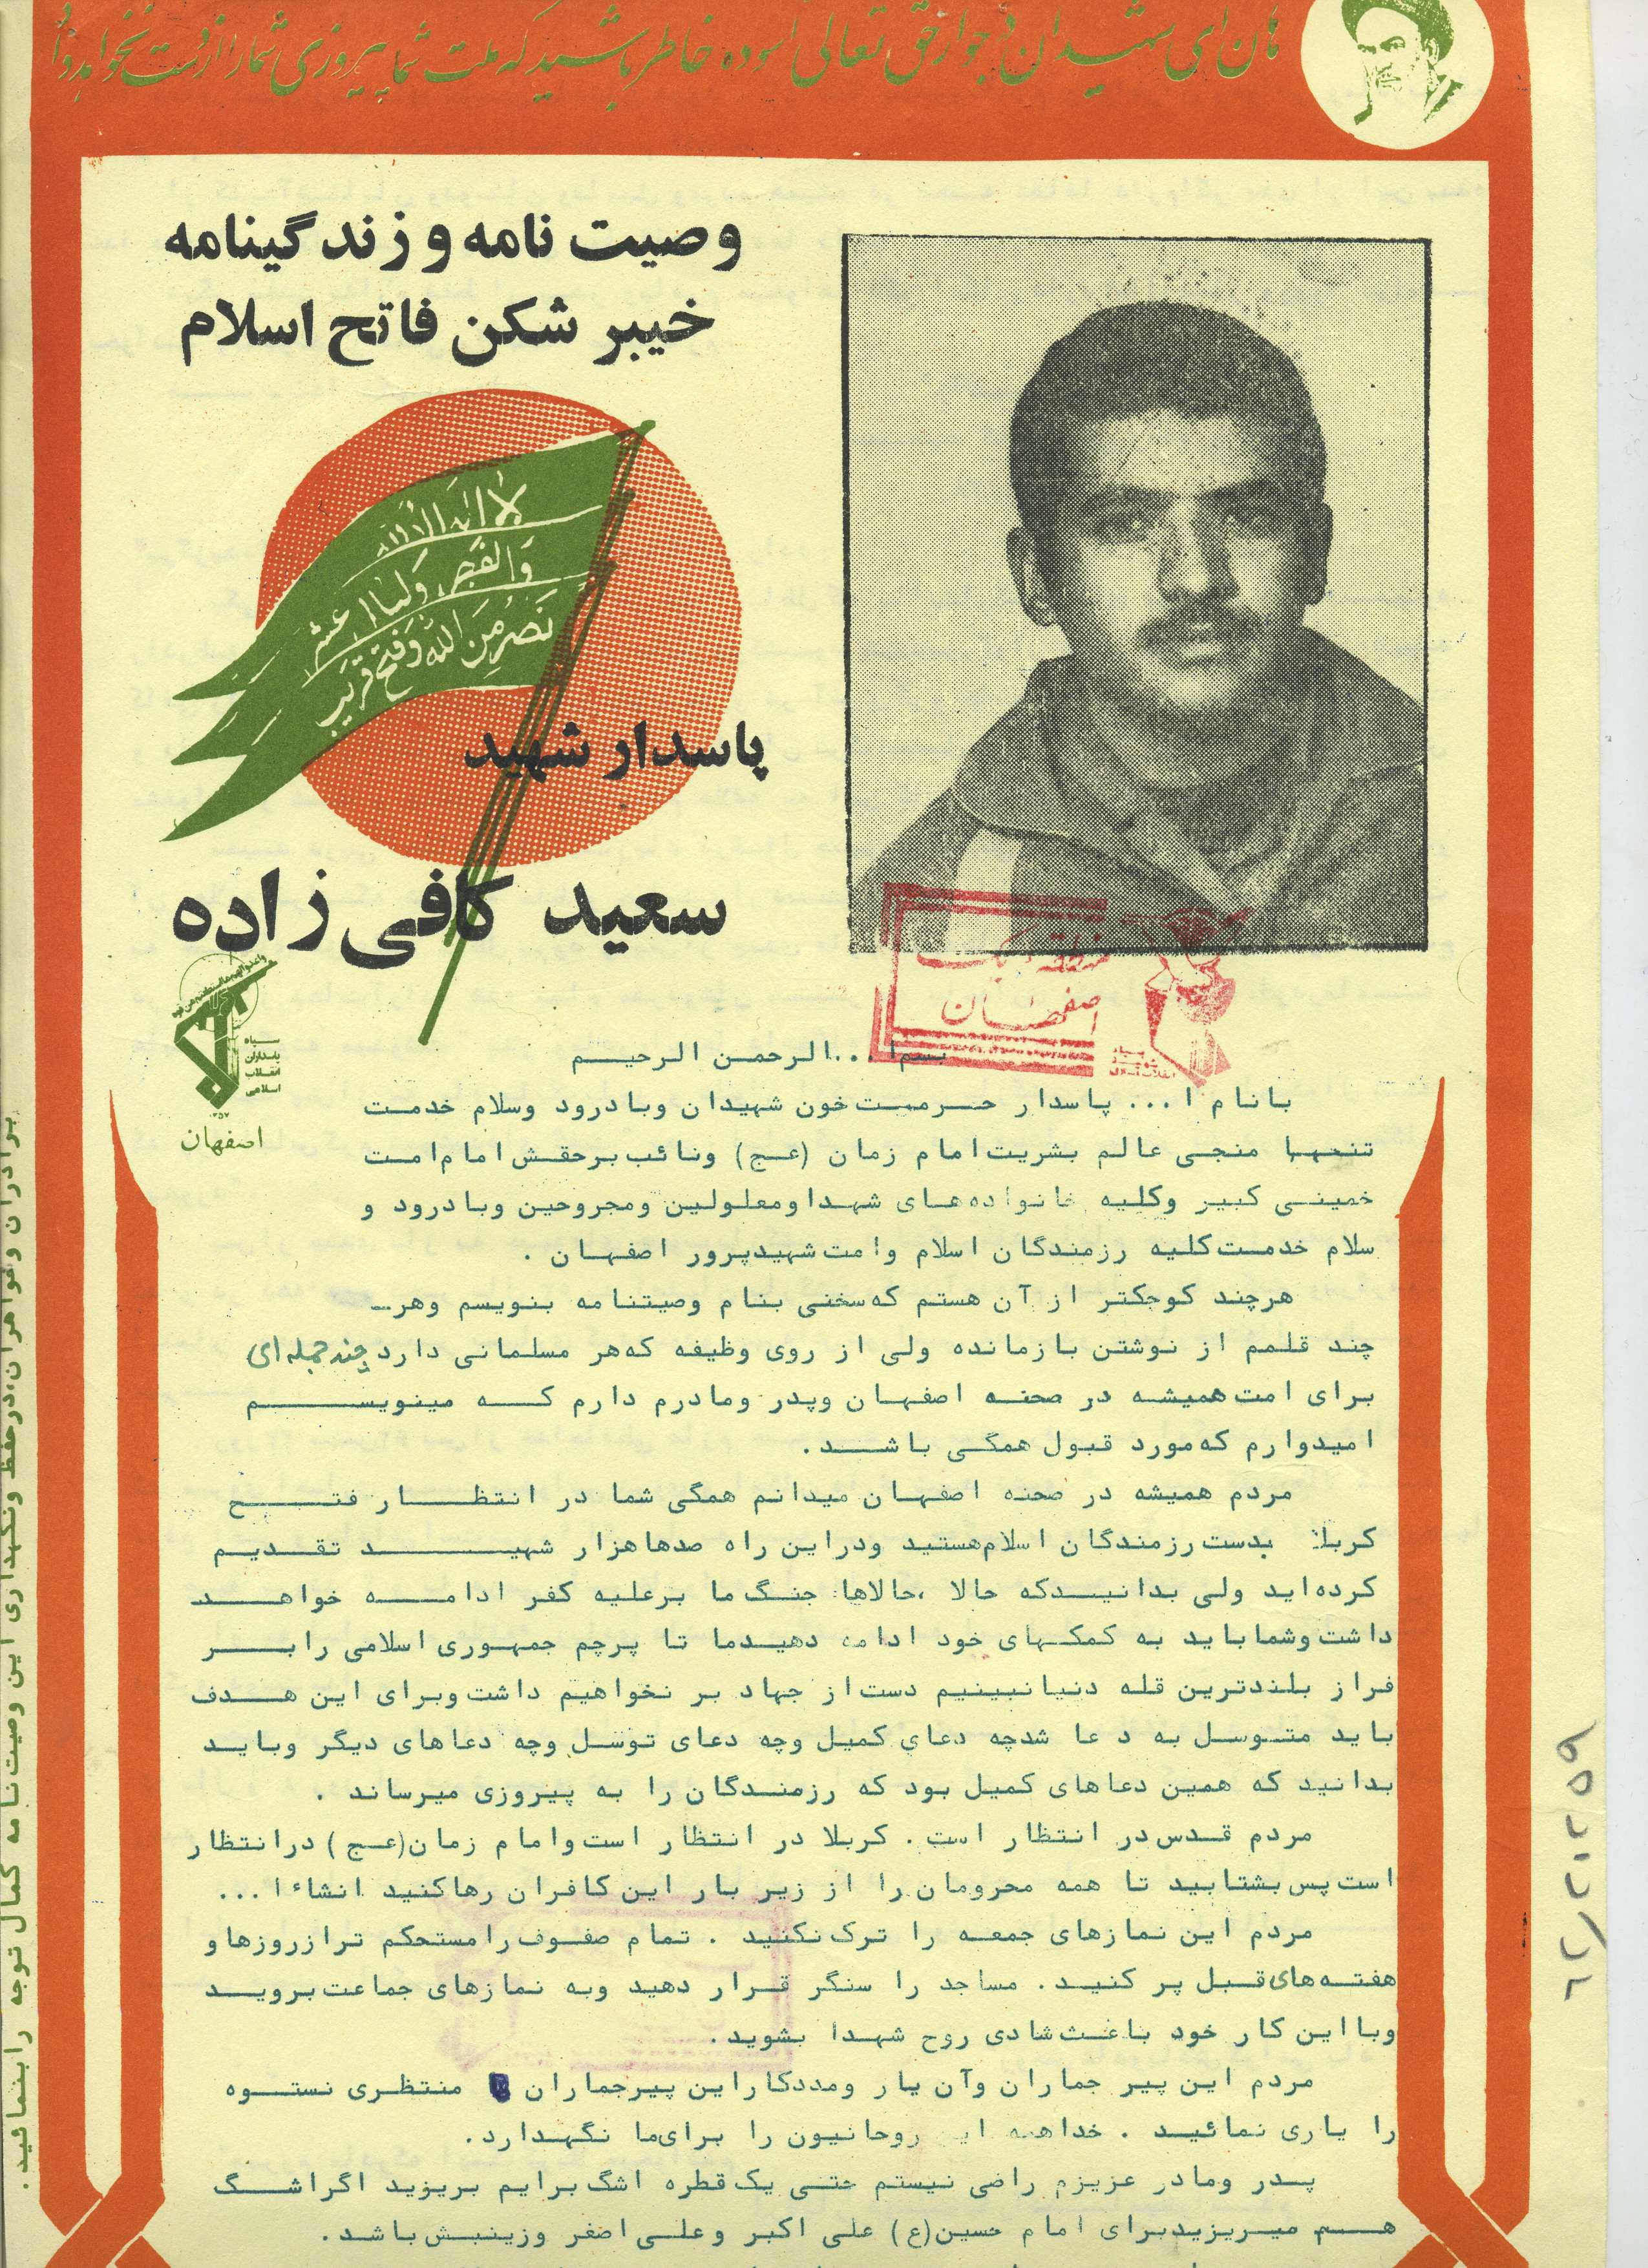 هان ای شهیدان در جوار حق تعالی آسوده خاطر باشید که ملت شما پیروزی شما را از دست نخواهد داد
وصیت نامه و زندگینامه
خیبر شکن فاتح اسلام
لا اله الا الله
والفجر ولیال عشر
نصر من الله وفتح قریب
پاسدار شهید
سعید کافی زاده
سپاه
پاسداران
انقلاب
اسلامی
۱۳۵۷
اصفهان
منطقه یک
اصفهان
بسم ا... الرحمن الرحیم
بانام ا... پاسدار حرمت خون شهیدان وبادرود وسلام خدمت
تنهها منجی عالم بشریت امام زمان (عج) ونائب برحقش امام امت
خمینی کبیر وکلیه خانواده های شهدا ومعلولین ومجروحین وبادرود و
سلام خدمت کلیه رزمندگان اسلام وامت شهیدپرور اصفهان .
هرچند کوچکتر از آن هستم که سخنی بنام وصیتنامه بنویسم وهر-
چند قلمم از نوشتن بازمانده ولی از روی وظیفه که هر مسلمانی دارد چند جمله ای
برای امت همیشه در صحنه اصفهان وپدر ومادرم دارم که مینویسم
امیدوارم که مورد قبول همگی باشد .
مردم همیشه در صحنه اصفهان میدانم همگی شما در انتظار فتح
کربلا بدست رزمندگان اسلام هستید ودراین راه صدها هزار شهید تقدیم
کرده اید ولی بدانید که حالا ،حالاها جنگ ما برعلیه کفر ادامه خواهد
داشت وشما باید به کمکهای خود ادامه دهید ما تا پرچم جمهوری اسلامی را بر
فراز بلندترین قله دنیا نبینیم دست از جهاد بر نخواهیم داشت وبرای این هدف
باید متوسل به دعا شد چه دعای کمیل وچه دعای توسل وچه دعاهای دیگر وباید
بدانید که همین دعاهای کمیل بود که رزمندگان را به پیروزی میرساند .
مردم قدس در انتظار است . کربلا در انتظار است وامام زمان(عج) درانتظار
است پس بشتابید تا همه محرومان را از زیر بار این کافران رها کنید انشاءا...
مردم این نمازهای جمعه را ترک نکنید . تمام صفوف را مستحکم تر از روزها و
هفته های قبل پر کنید . مساجد را سنگر قرار دهید وبه نمازهای جماعت بروید
وبا این کار خود باعث شادی روح شهدا بشوید .
مردم این پیر جماران وآن یار ومددکار این پیرجماران منتظری نستوه
را یاری نمائید . خدا همه این روحانیون را برای ما نگهدارد .
پدر ومادر عزیزم راضی نیستم حتی یک قطره اشگ برایم بریزید اگر اشگ
هم میریزید برای امام حسین(ع) علی اکبر وعلی اصغر وزینبش باشد .
برادران وخواهران، درحفظ ونگهداری این وصیت نامه کمال توجه را بنمائید .